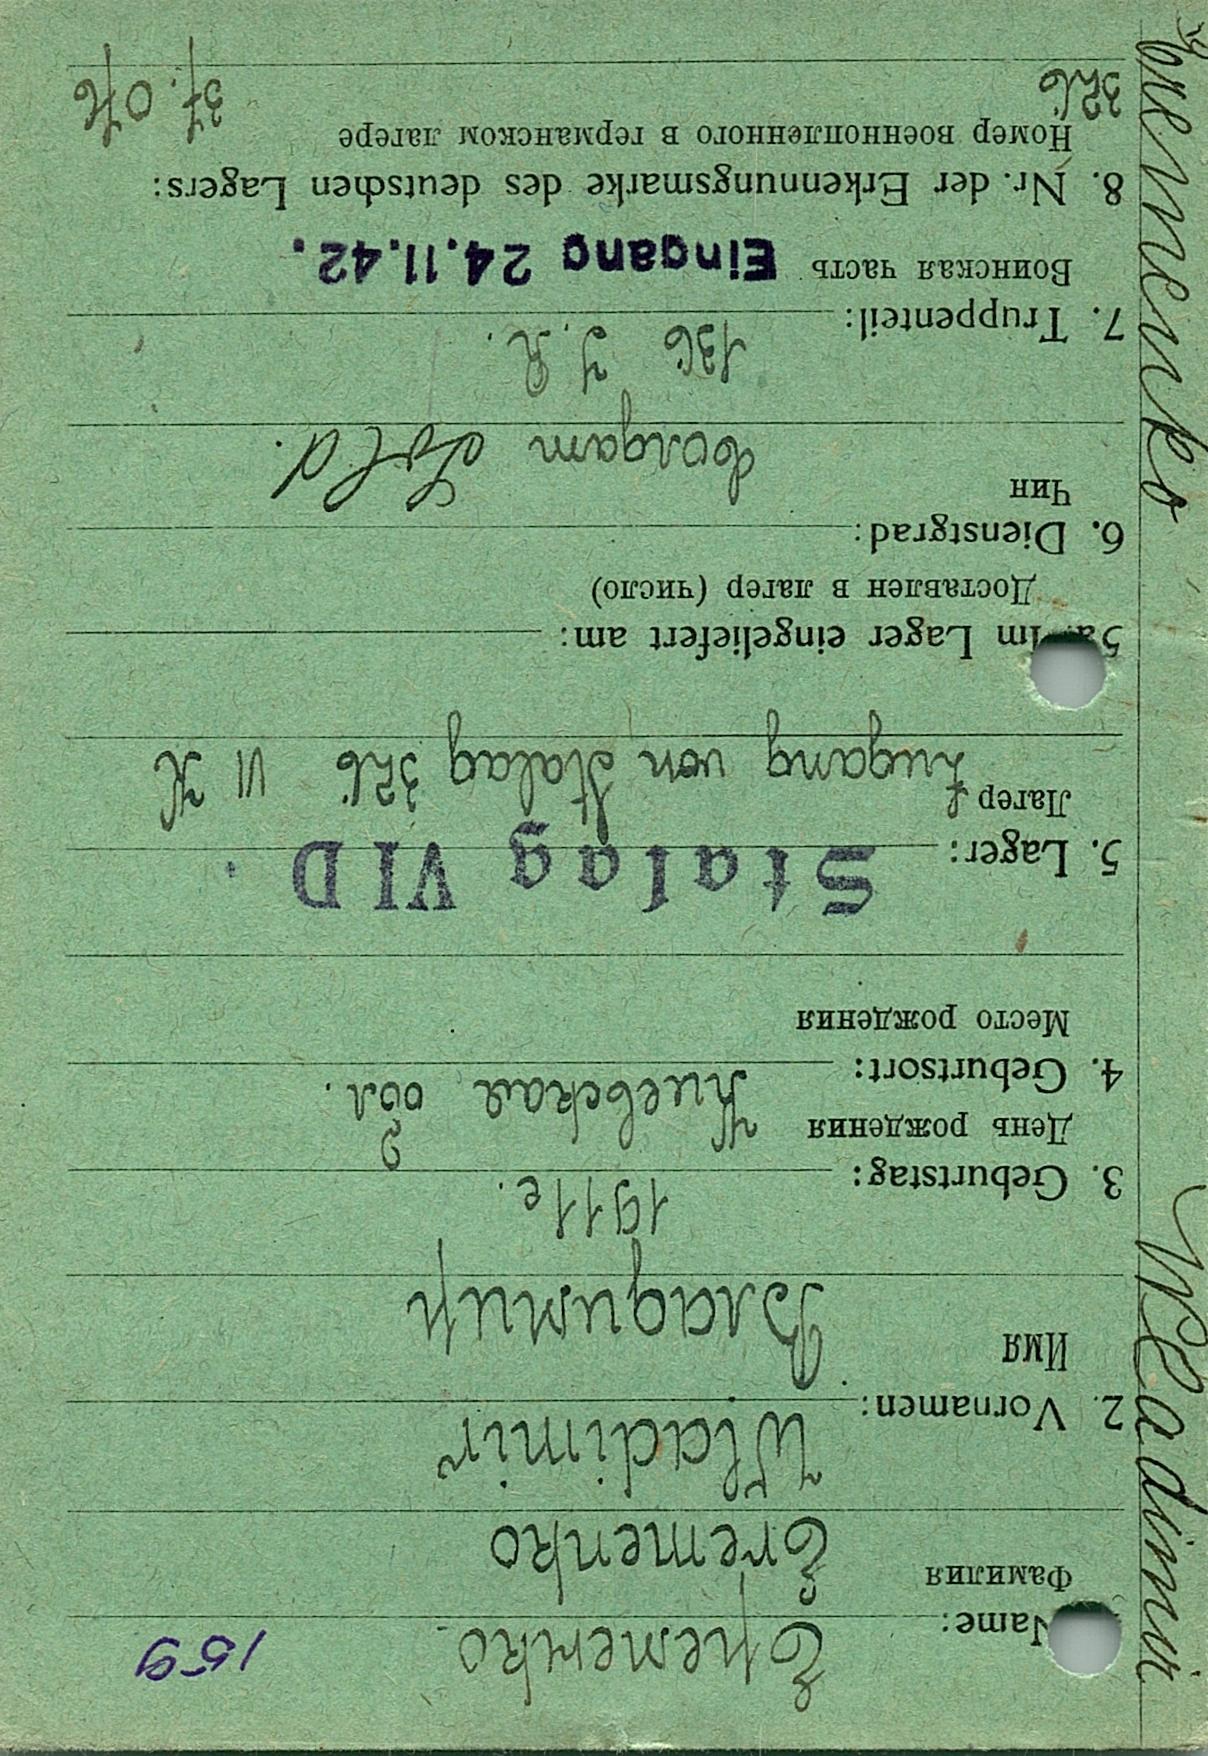 159
Name: Еременко.
Фамилия
Eremenko
Wladimir
2. Vornamen:
Имя Владимир
1911г.
3. Geburtstag:
День рождения Киевская обл.
4. Geburtsort:
Место рождения
Stalag VID.
5. Lager:
Лагер Zugang von Stalag 326 VI K
5a. Im Lager eingeliefert am:
Доставлен в лагер (число)
6. Dienstgrad:
Чин
Солдат Sold.
136 J.R.
7. Truppenteil:
Воинская часть Eingang 24.11.42.
8. Nr. der Erkennungsmarke des deutschen Lagers:
Номер военнопленного в германском лагере
326 37.076
Wladimir Eremenko